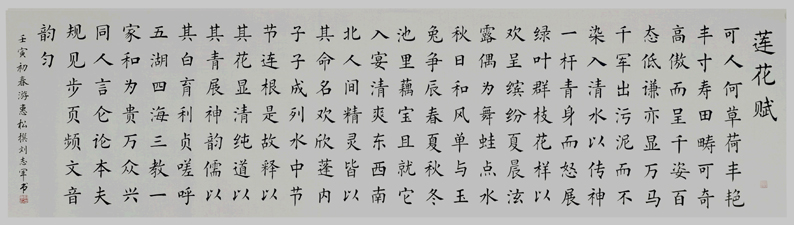 莲花赋
可人何草荷丰艳
丰寸寿田畴可奇
高傲而呈千姿百
态低谦亦显万马
千军出污泥而不
染入清水以传神
一杆青身而怒展
绿叶群枝花样以
欢呈缤纷夏晨泫
露偶为舞蛙点水
秋日和风单与玉
兔争辰春夏秋冬
池里藕宝且就它
入宴清爽东西南
北人间精灵皆以
其命名欢欣蓬内
子子成列水中节
节连根是故释以
其花显清纯道以
其青展神韵儒以
其白育利贞嗟呼
五湖四海三教一
家和为贵万众兴
同人言仑论本夫
规见步页频文音
韵匀
壬寅初春游惠松撰刘志军书